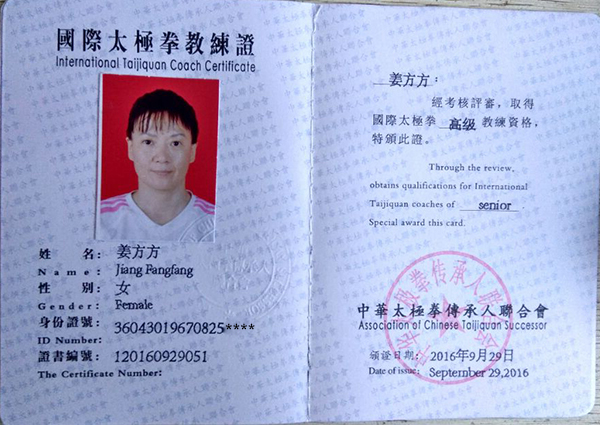 國際太極拳教練證
International Taijiquan Coach Certificate
姓 名: 姜方方
Name: Jiang Fangfang
性 別: 女
Gender: Female
身份證號: 36043019670825****
ID Number:
證書編號: 120160929051
The Certificate Number:
姜方方:
經考核評審,取得
國際太極拳 高级 教練資格,
特頒此證。
Through the review,
obtains qualifications for International
Taijiquan coaches of senior
Special award this card.
中華太極拳傳承人聯合會
Association of Chinese Taijiquan Successor
頒證日期: 2016年9月29日
Date of issue: September 29,2016